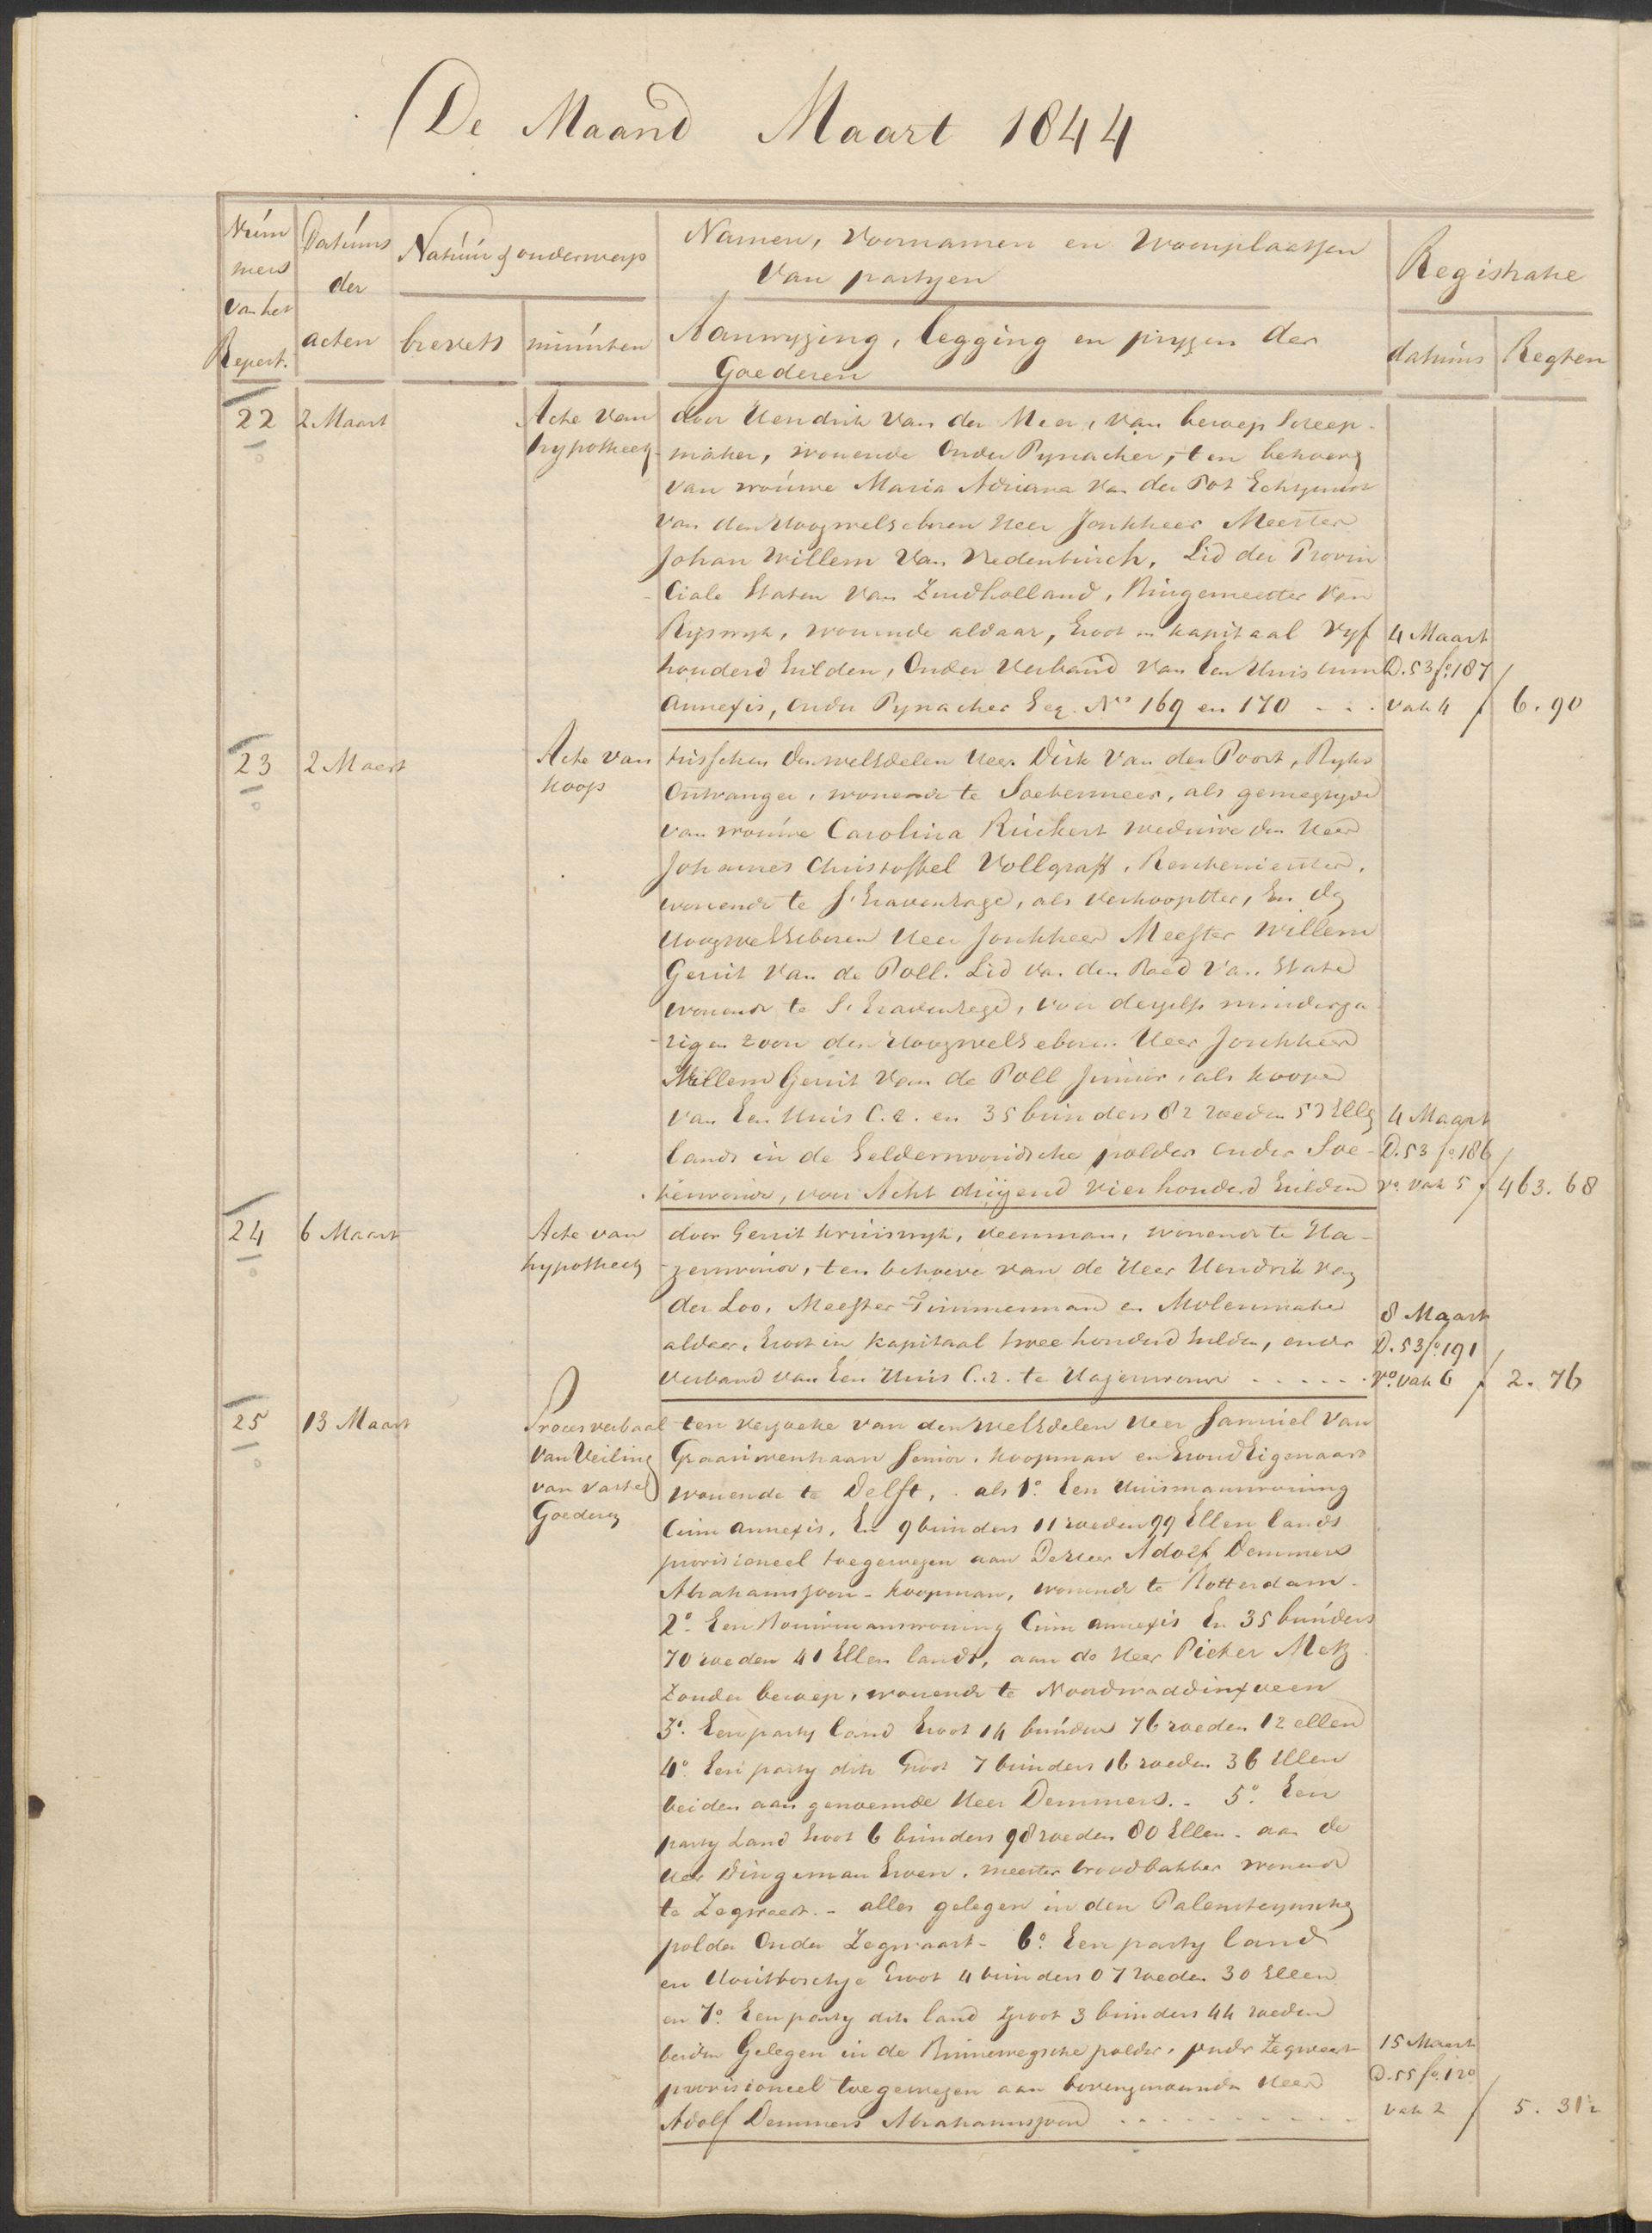 De Maand Maart 1844
Num
mers
van het
Repert.
Datums
der
acten
Natuur & onderwerp
brevets
minuten
Namen, Voornamen en Woonplaatsen
van partyen
Aanwyzing, legging en pryzen der
Goederen
Registratie
datums
Regten
22
2 Maart
Acte van
hypotheek
door Hendrik van der Meer, van beroep Scheep-
maker, wonende Onder Pynacker, ten behoeve
van vrouwe Maria Adriana van der Pot Echtgenoot
van den Hoogwelgeboren Heer Jonkheer Meester
Johan Willem van Vredenburch, Lid der Provin
-ciale Staten van Zuidholland, Burgemeester van
Ryswyk, wonende aldaar, Groot in kapitaal Vyf
honderd Gulden, Onder Verband van Een Huis cum
annexis, onder Pynacker Get. No 169 en 170 - - -
4 Maart
D. 53 fo. 187
vak 4
f 6. 90
23
2 Maart
Acte van
koop
tusschen den weledelen Heer Dirk van der Poort, Ryks
Ontvanger, wonende te Soetermeer, als gemagtigde
van vrouwe Carolina Rückert weduwe den Heer
Johannes Christoffel Vollgraff, Rentenierster,
wonende te s'Gravenhage, als Verkoopster, En de
Hoogwelgeboren Heer Jonkheer Meester Willem
Gerrit van de Poll, Lid van den Raad van State
wonende te s'Gravenhage, voor deszelfs minderja
-rigen zoon den Hoogwelgeboren Heer Jonkheer
Willem Gerrit van de Poll Junior, als kooper
van Een Huis C.a. en 35 bunders 82 roeden 57 Ellen
lands in de Gelderswoudsche polder onder Soe-
terwoude, voor Acht duizend vier honderd Gulden
4 Maart
D. 53 fo. 186
vo. vak 5
f 463. 68
24
6 Maart
Acte van
hypotheek
door Gerrit Kruiswyk, veenman, wonende te Ha-
zerswoude, ten behoeve van de Heer Hendrik van
der Loo, Meester Timmerman en Molenmaker
aldaar, Groot in kapitaal twee honderd Gulden, onder
verband van Een Huis C.a. te Hazerswoude - - - - -
8 Maart
D. 53 fo. 191
vo. vak 6
f 2. 76
25
13 Maart
Proces verbaal
van Veiling
van vaste
Goederen
ten verzoeke van den weledelen Heer Samuel van
Graauwenhaan Senior, koopman en GrondEigenaar
wonende te Delft, - als 1o. Een Huismanswoning
Cum annexis, En 9 bunders 11 roeden 99 Ellen lands
provisioneel toegewezen aan De Heer Adolf Demmers
Abrahamszoon - koopman, wonende te Rotterdam -
2o. Een Bouwmanswoning Cum annexis En 35 bunders
70 roeden 41 Ellen lands, aan de Heer Pieter Metz
zonder beroep, wonende te Noordwaddinxveen
3o. Een party land Groot 14 bunders 76 roeden 12 ellen
4o. Een party dito Groot 7 bunders 16 roeden 36 Ellen
beiden aan genoemde Heer Demmers. - 5o. Een
party Land Groot 6 bunders 98 roeden 80 Ellen - aan de
Heer Dingeman Groen, meester broodbakker wonende
te Zegwaart. - alles gelegen in den Palensteynsche
polder Onder Zegwaart - 6o. Een party land
en Houtboschje Groot 4 bunders 07 roeden 30 Ellen
en 7o. Een party dito land Groot 3 bunders 44 roeden
beiden Gelegen in de Binnenwegsche polder, onder Zegwaart
provisioneel toegewezen aan bovengenoemden Heer
Adolf Demmers Abrahamszoon - - - - - - - - - -
15 Maart
D. 55 fo. 120
vak 2
f 5. 31½